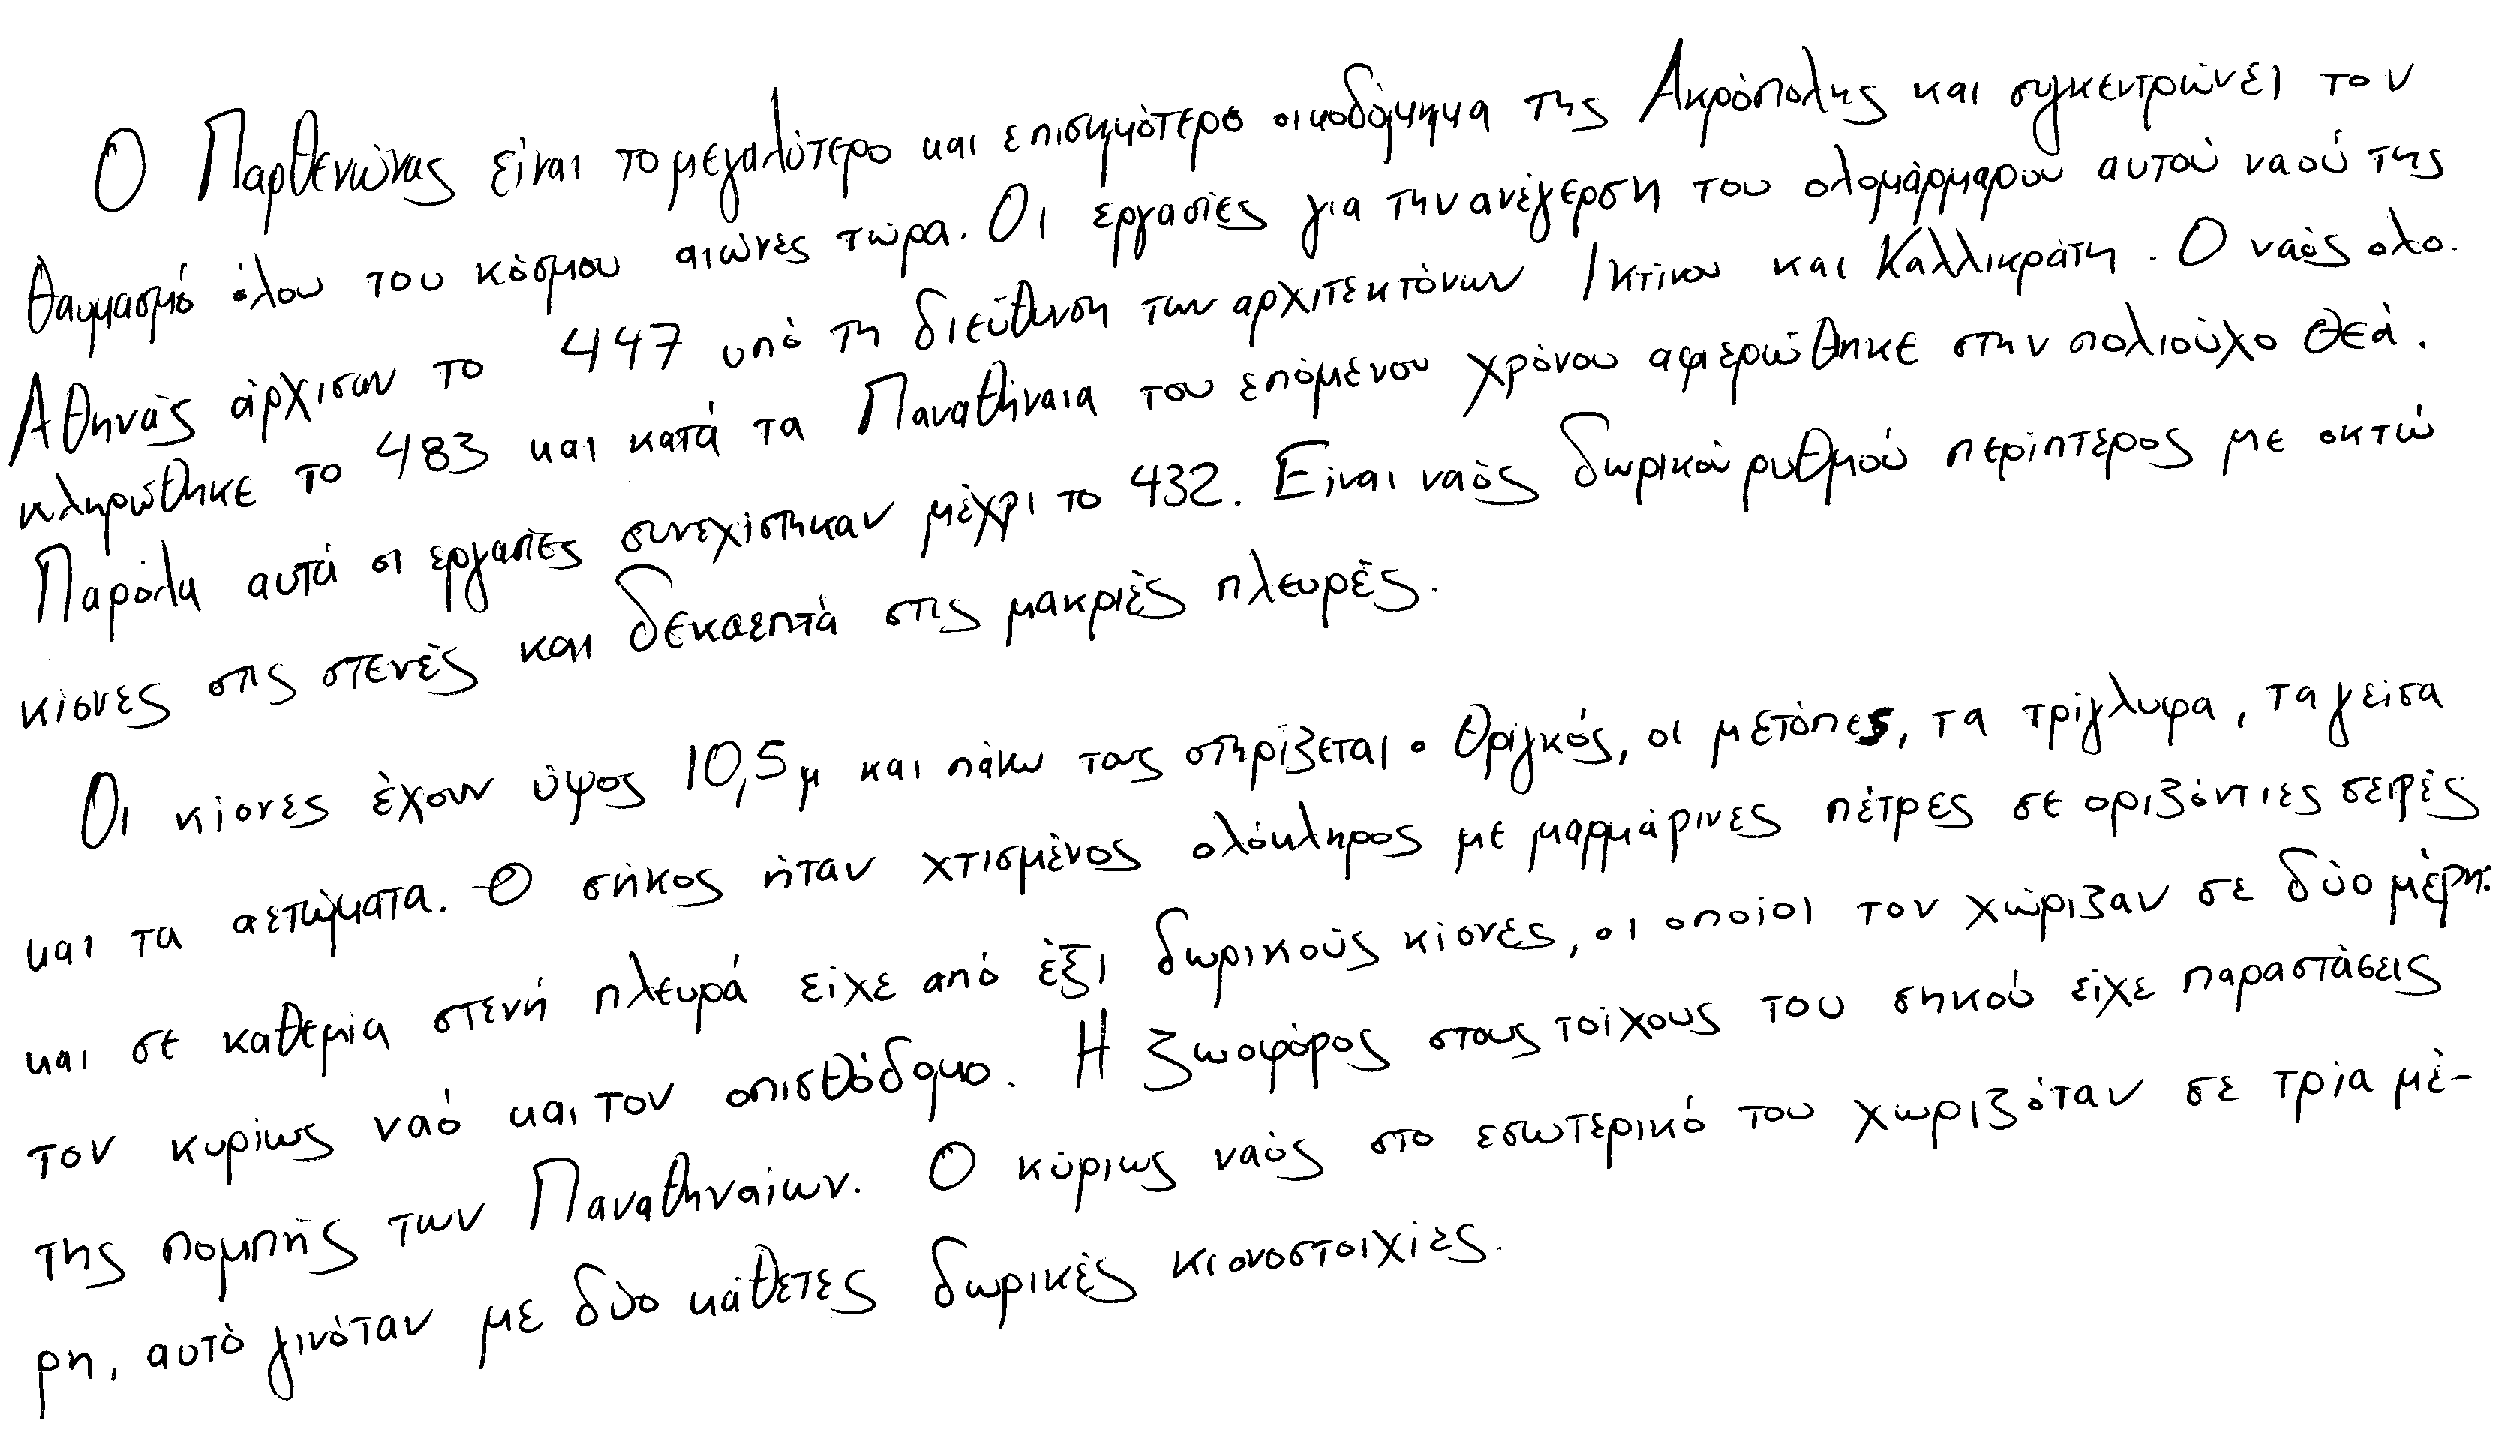 Ο Παρθενώνας είναι το μεγαλύτερο και επισημότερο οικοδόμημα της Ακρόπολης και συγκεντρώνει τον
θαυμασμό όλου του κόσμου αιώνες τώρα. Οι εργασίες για την ανέγερση του ολομάρμαρου αυτού ναού της
Αθηνάς άρχισαν το 447 υπό τη διεύθυνση των αρχιτεκτόνων Ικτίνου και Καλλικράτη. Ο ναός ολο-
κληρώθηκε το 483 και κατά τα Παναθήναια του επόμενου χρόνου αφιερώθηκε στην πολιούχο θεά.
Παρόλα αυτά οι εργασίες συνεχίστηκαν μέχρι το 432. Είναι ναός δωρικού ρυθμού περίπτερος με οκτώ
κίονες στις στενές και δεκαεπτά στις μακριές πλευρές.
Οι κίονες έχουν ύψος 10,5μ και πάνω τους στηρίζεται ο θριγκός, οι μετόπες, τα τρίγλυφα, τα γείσα
και τα αετώματα. Ο σηκός ήταν χτισμένος ολόκληρος με μαρμάρινες πέτρες σε οριζόντιες σειρές
και σε καθεμία στενή πλευρά είχε από έξι δωρικούς κίονες, οι οποίοι τον χώριζαν σε δύο μέρη:
τον κυρίως ναό και τον οπισθόδομο. Η ζωοφόρος στους τοίχους του σηκού είχε παραστάσεις
της πομπής των Παναθηναίων. Ο κύριως ναός στο εσωτερικό του χωριζόταν σε τρία μέ-
ρη, αυτό γινόταν με δύο κάθετες δωρικές κιονοστοιχίες.